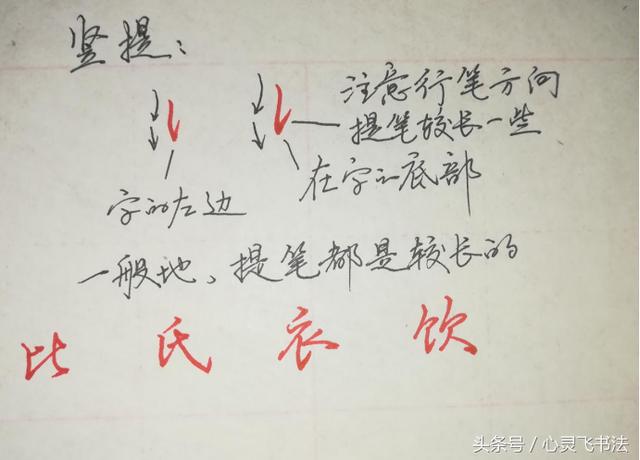 竖提：
注意行笔方向
提笔较长一些
字的左边
在字的底部
一般地，提笔都是较长的
比 氏 衣 饮
头条号／心灵飞书法